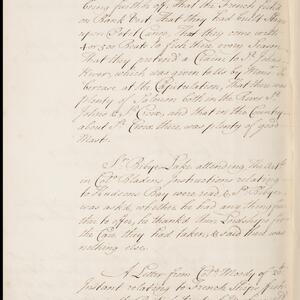 being further off, that the French fish'd
on Bank Vert, that they had built
upon Petit Canso, that they come with
4 or 500 Boats to fish there every Season
that they pretend a Claim to St. Johns
River, which was given told by
at the Capitulation, that there was
plenty of Salmon both in the River St.
Johns & St. Croix, and that in the Country
about St. Croix there was plenty of good
Masts.
Sr. Bibye Lake attending, the Art.s
in Col.o Bladens Instructions relating
to Hudsons Bay were read, & Sr. Bibye
was ask'd, whether he had any thing fur-
ther to offer, he thanked their Lordships for
the Care they had taken, & said there was
nothing else.
A Letter from Col.o Moody of
Instant relating to French Ships fish-